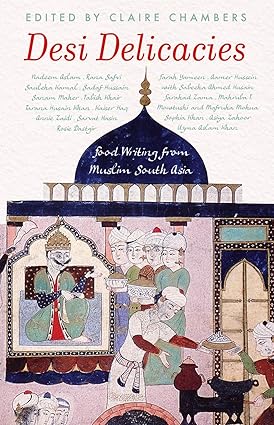 EDITED BY CLAIRE CHAMBERS
Desi Delicacies
Nadeem Aslam · Rana Safvi
Sauleha Kamal · Sadaf Hussain
Sanam Maher · Tabish Khair
Tarana Husain Khan · Kaiser Haq
Annie Zaidi · Sarvat Hasin
Rosie Dastgir
Farah Yameen · Aamer Hussein
with Sabeeha Ahmed Husain
Farahad Zama · Mahruba T.
Mowtushi and Mafruha Mohua
Sophia Khan · Asiya Zahoor
Uzma Aslam Khan
Food Writing from
Muslim South Asia